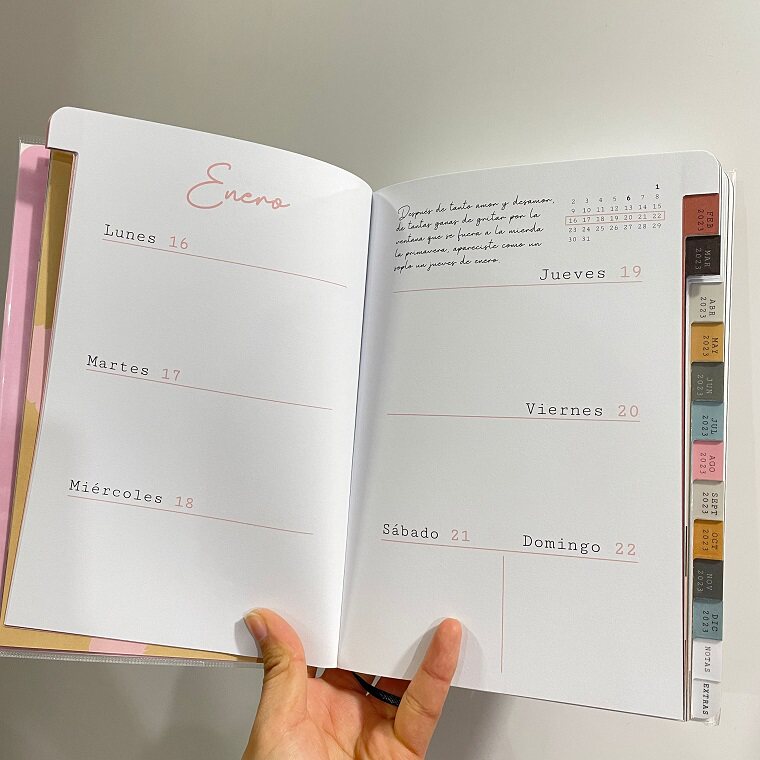 Enero
Lunes 16
Martes 17
Miércoles 18
Después de tanto amor y desamor,
de tantas ganas de gritar por la
ventana que se fuera a la mierda
la primavera, apareciste como un
soplo un jueves de enero.
1
2 3 4 5 6 7 8
9 10 11 12 13 14 15
16 17 18 19 20 21 22
23 24 25 26 27 28 29
30 31
Jueves 19
Viernes 20
Sábado 21
Domingo 22
FEB
2023
MAR
2023
ABR
2023
MAY
2023
JUN
2023
JUL
2023
AGO
2023
SEPT
2023
OCT
2023
NOV
2023
DIC
2023
NOTAS
EXTRAS